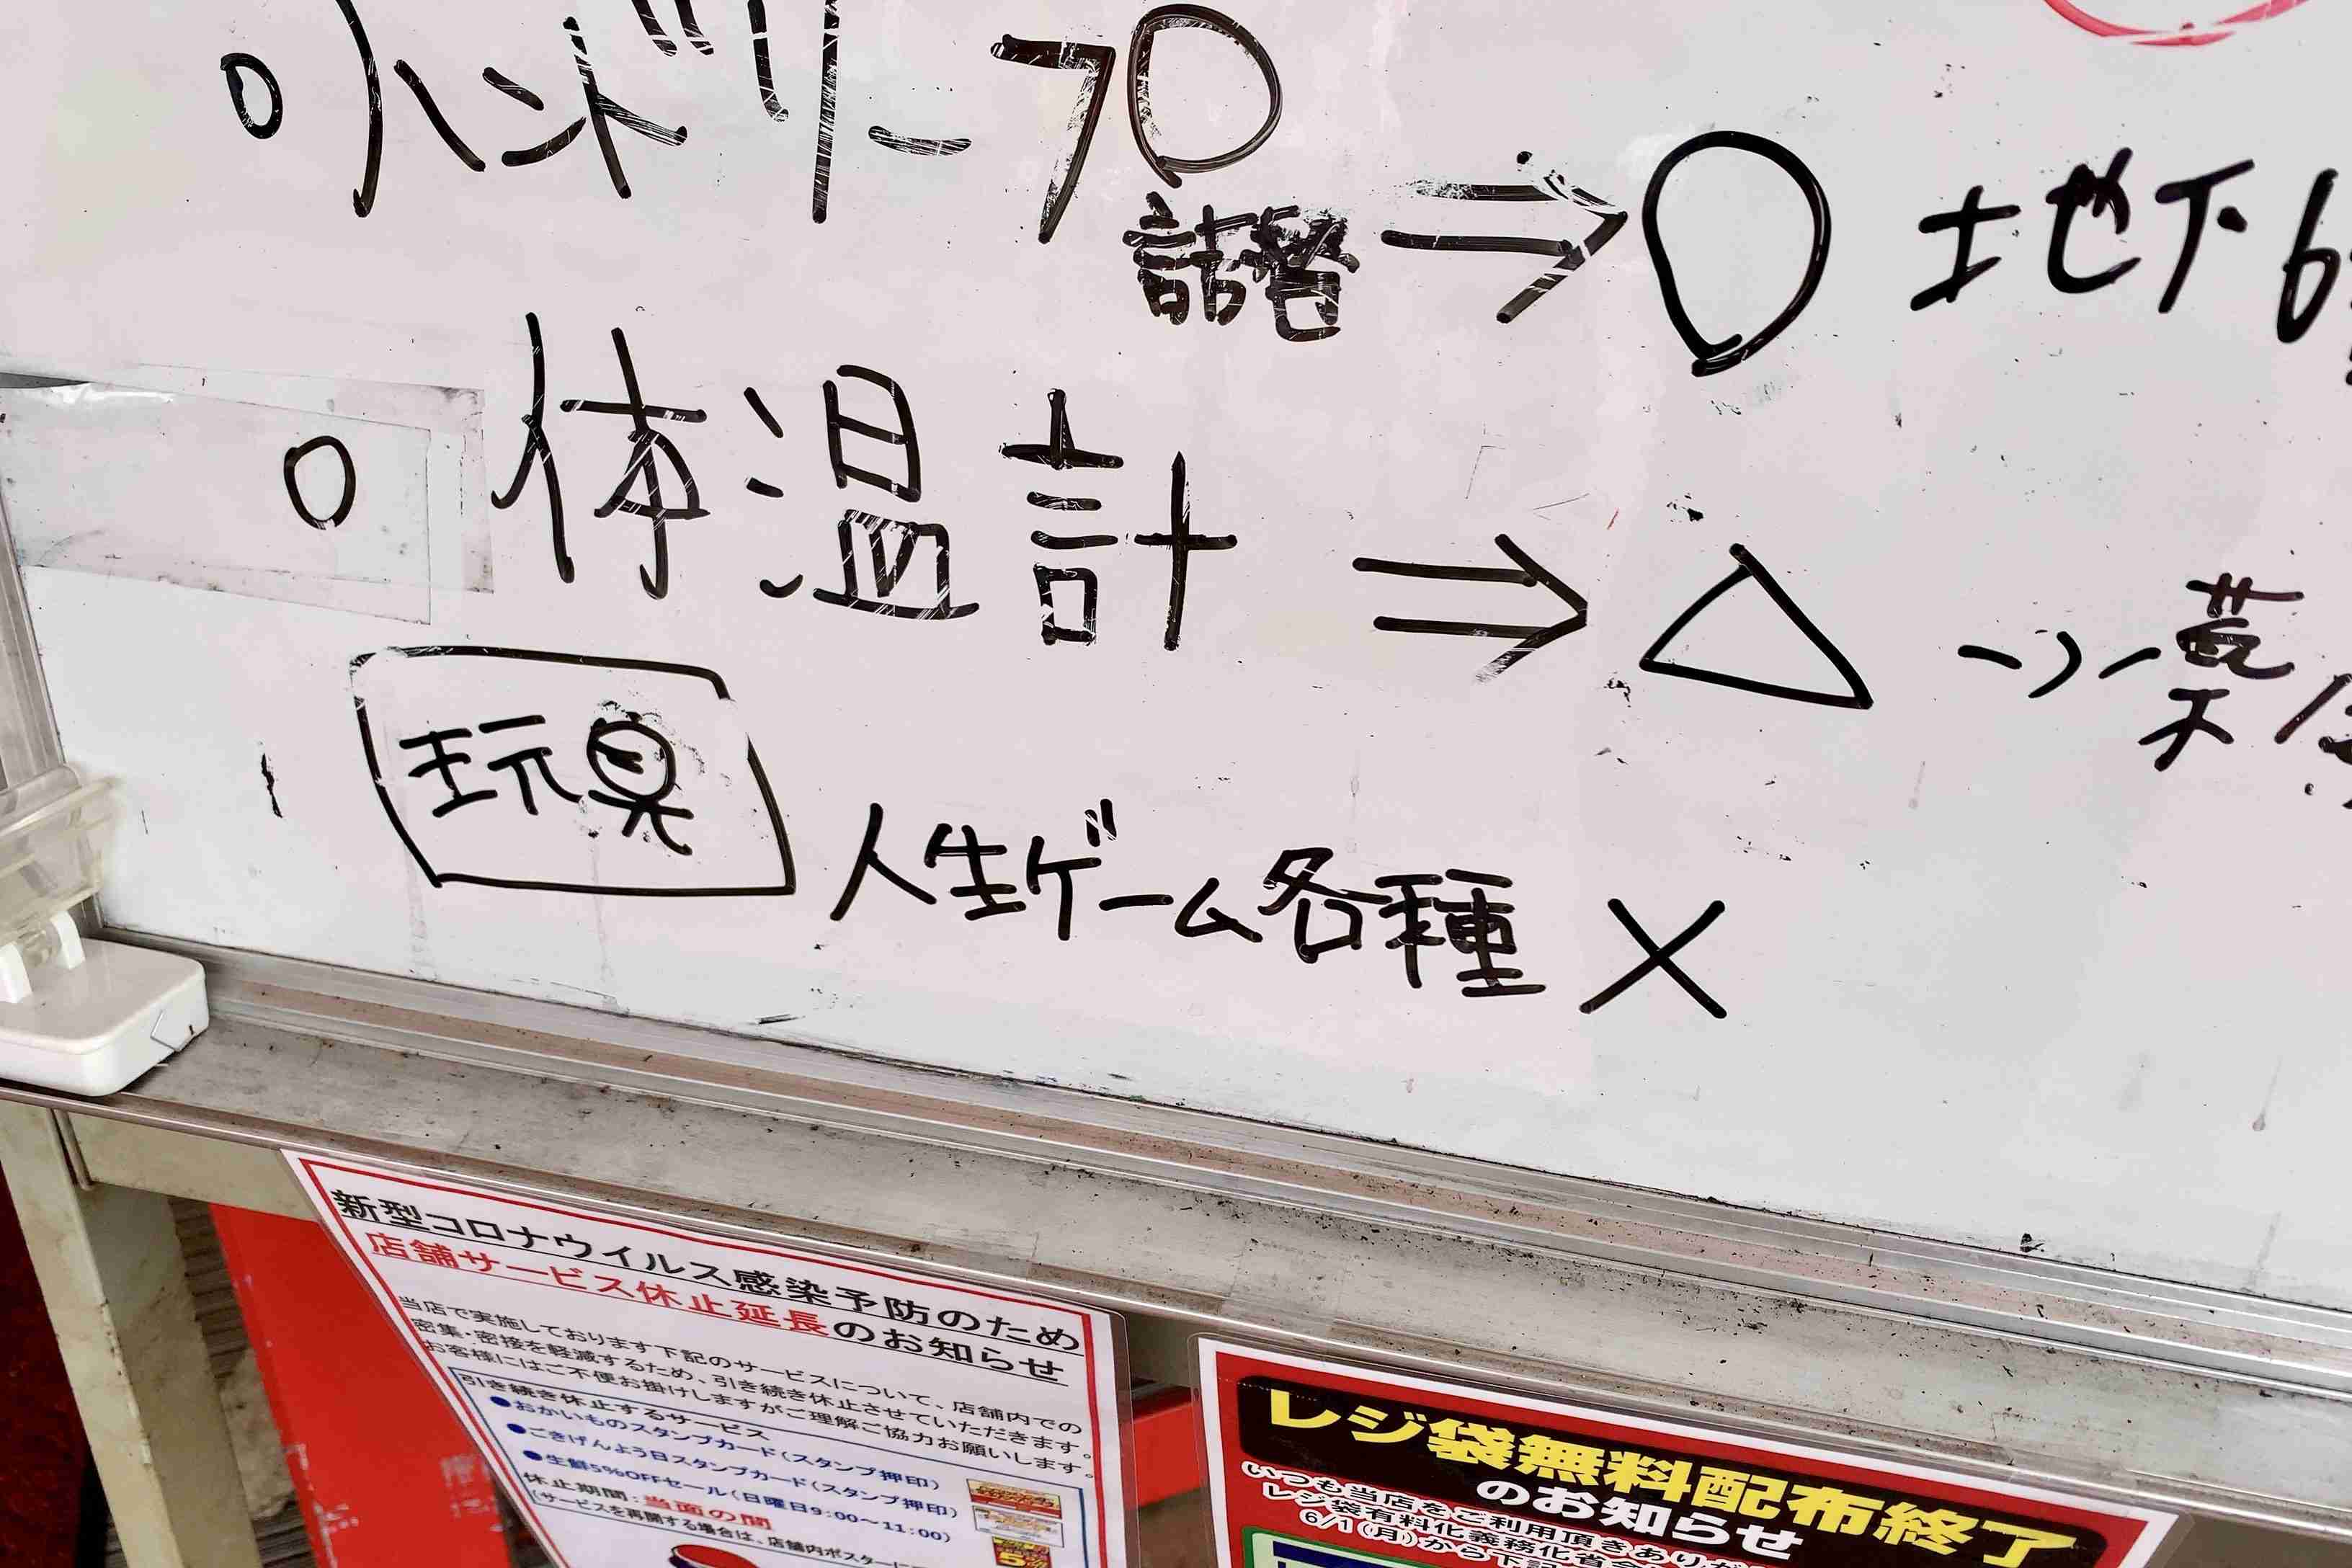 ○ハンドソープ
詰替 ⇒ ○ 地下6
○体温計 ⇒ △ 薬
玩具 人生ゲーム各種 ×
新型コロナウイルス感染予防のため
店舗サービス休止延長のお知らせ
当店で実施しております下記のサービスについて、店舗内での
密集・密接を軽減するため、引き続き休止させていただきます。
お客様にはご不便お掛けしますがご理解ご協力お願いします。
引き続き休止するサービス
●おかいものスタンプカード(スタンプ押印)
●ごきげんよう日スタンプカード(スタンプ押印)
●生鮮5%OFFセール(日曜日9:00～11:00)
休止期間:当面の間
(サービスを再開する場合は、店舗内ポスターに
レジ袋無料配布終了
のお知らせ
いつも当店をご利用頂きありが
レジ袋有料化義務化省令
6/1(月)から下記